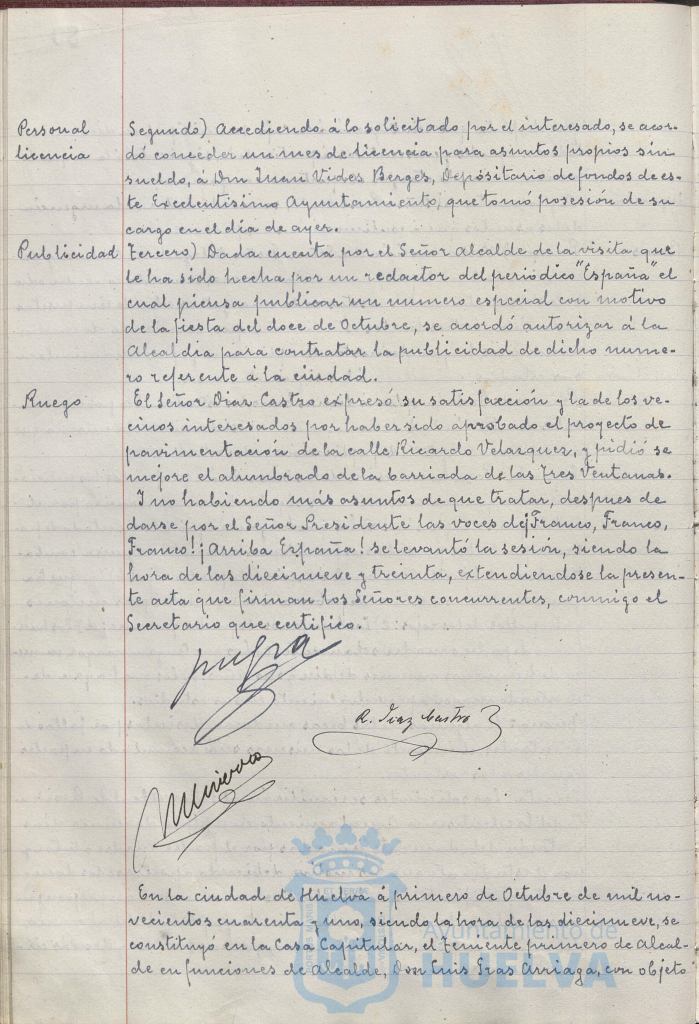 Personal
licencia
Segundo) Accediendo á lo solicitado por el interesado, se acor-
dó conceder un mes de licencia para asuntos propios sin
sueldo, á Don Juan Vides Berges, Depositario de fondos de es-
te Excelentisimo Ayuntamiento, que tomó posesión de su
cargo en el dia de ayer.
Publicidad
Tercero) Dada cuenta por el Señor Alcalde de la visita que
le ha sido hecha por un redactor del periódico "España" el
cual piensa publicar un numero especial con motivo
de la fiesta del doce de Octubre, se acordó autorizar á la
Alcaldia para contratar la publicidad de dicho nume-
ro referente á la ciudad.
Ruego
El Señor Diaz Castro expresó su satisfacción y la de los ve-
cinos interesados por haber sido aprobado el proyecto de
pavimentación de la calle Ricardo Velazquez, y pidió se
mejore el alumbrado de la barriada de las Tres Ventanas.
I no habiendo más asuntos de que tratar, despues de
darse por el Señor Presidente las voces de ¡Franco, Franco,
Franco! ¡Arriba España! se levantó la sesión, siendo la
hora de las diecinueve y treinta, extendiendose la presen-
te acta que firman los Señores concurrentes, conmigo el
Secretario que certifico.
R. Diaz Castro
En la ciudad de Huelva á primero de Octubre de mil no-
vecientos cuarenta y uno, siendo la hora de las diecinueve, se
constituyó en la Casa Capitular, el Teniente primero de Alcal-
de en funciones de Alcalde, Don Luis Gras Arriaga, con objeto
Ayuntamiento de
HUELVA